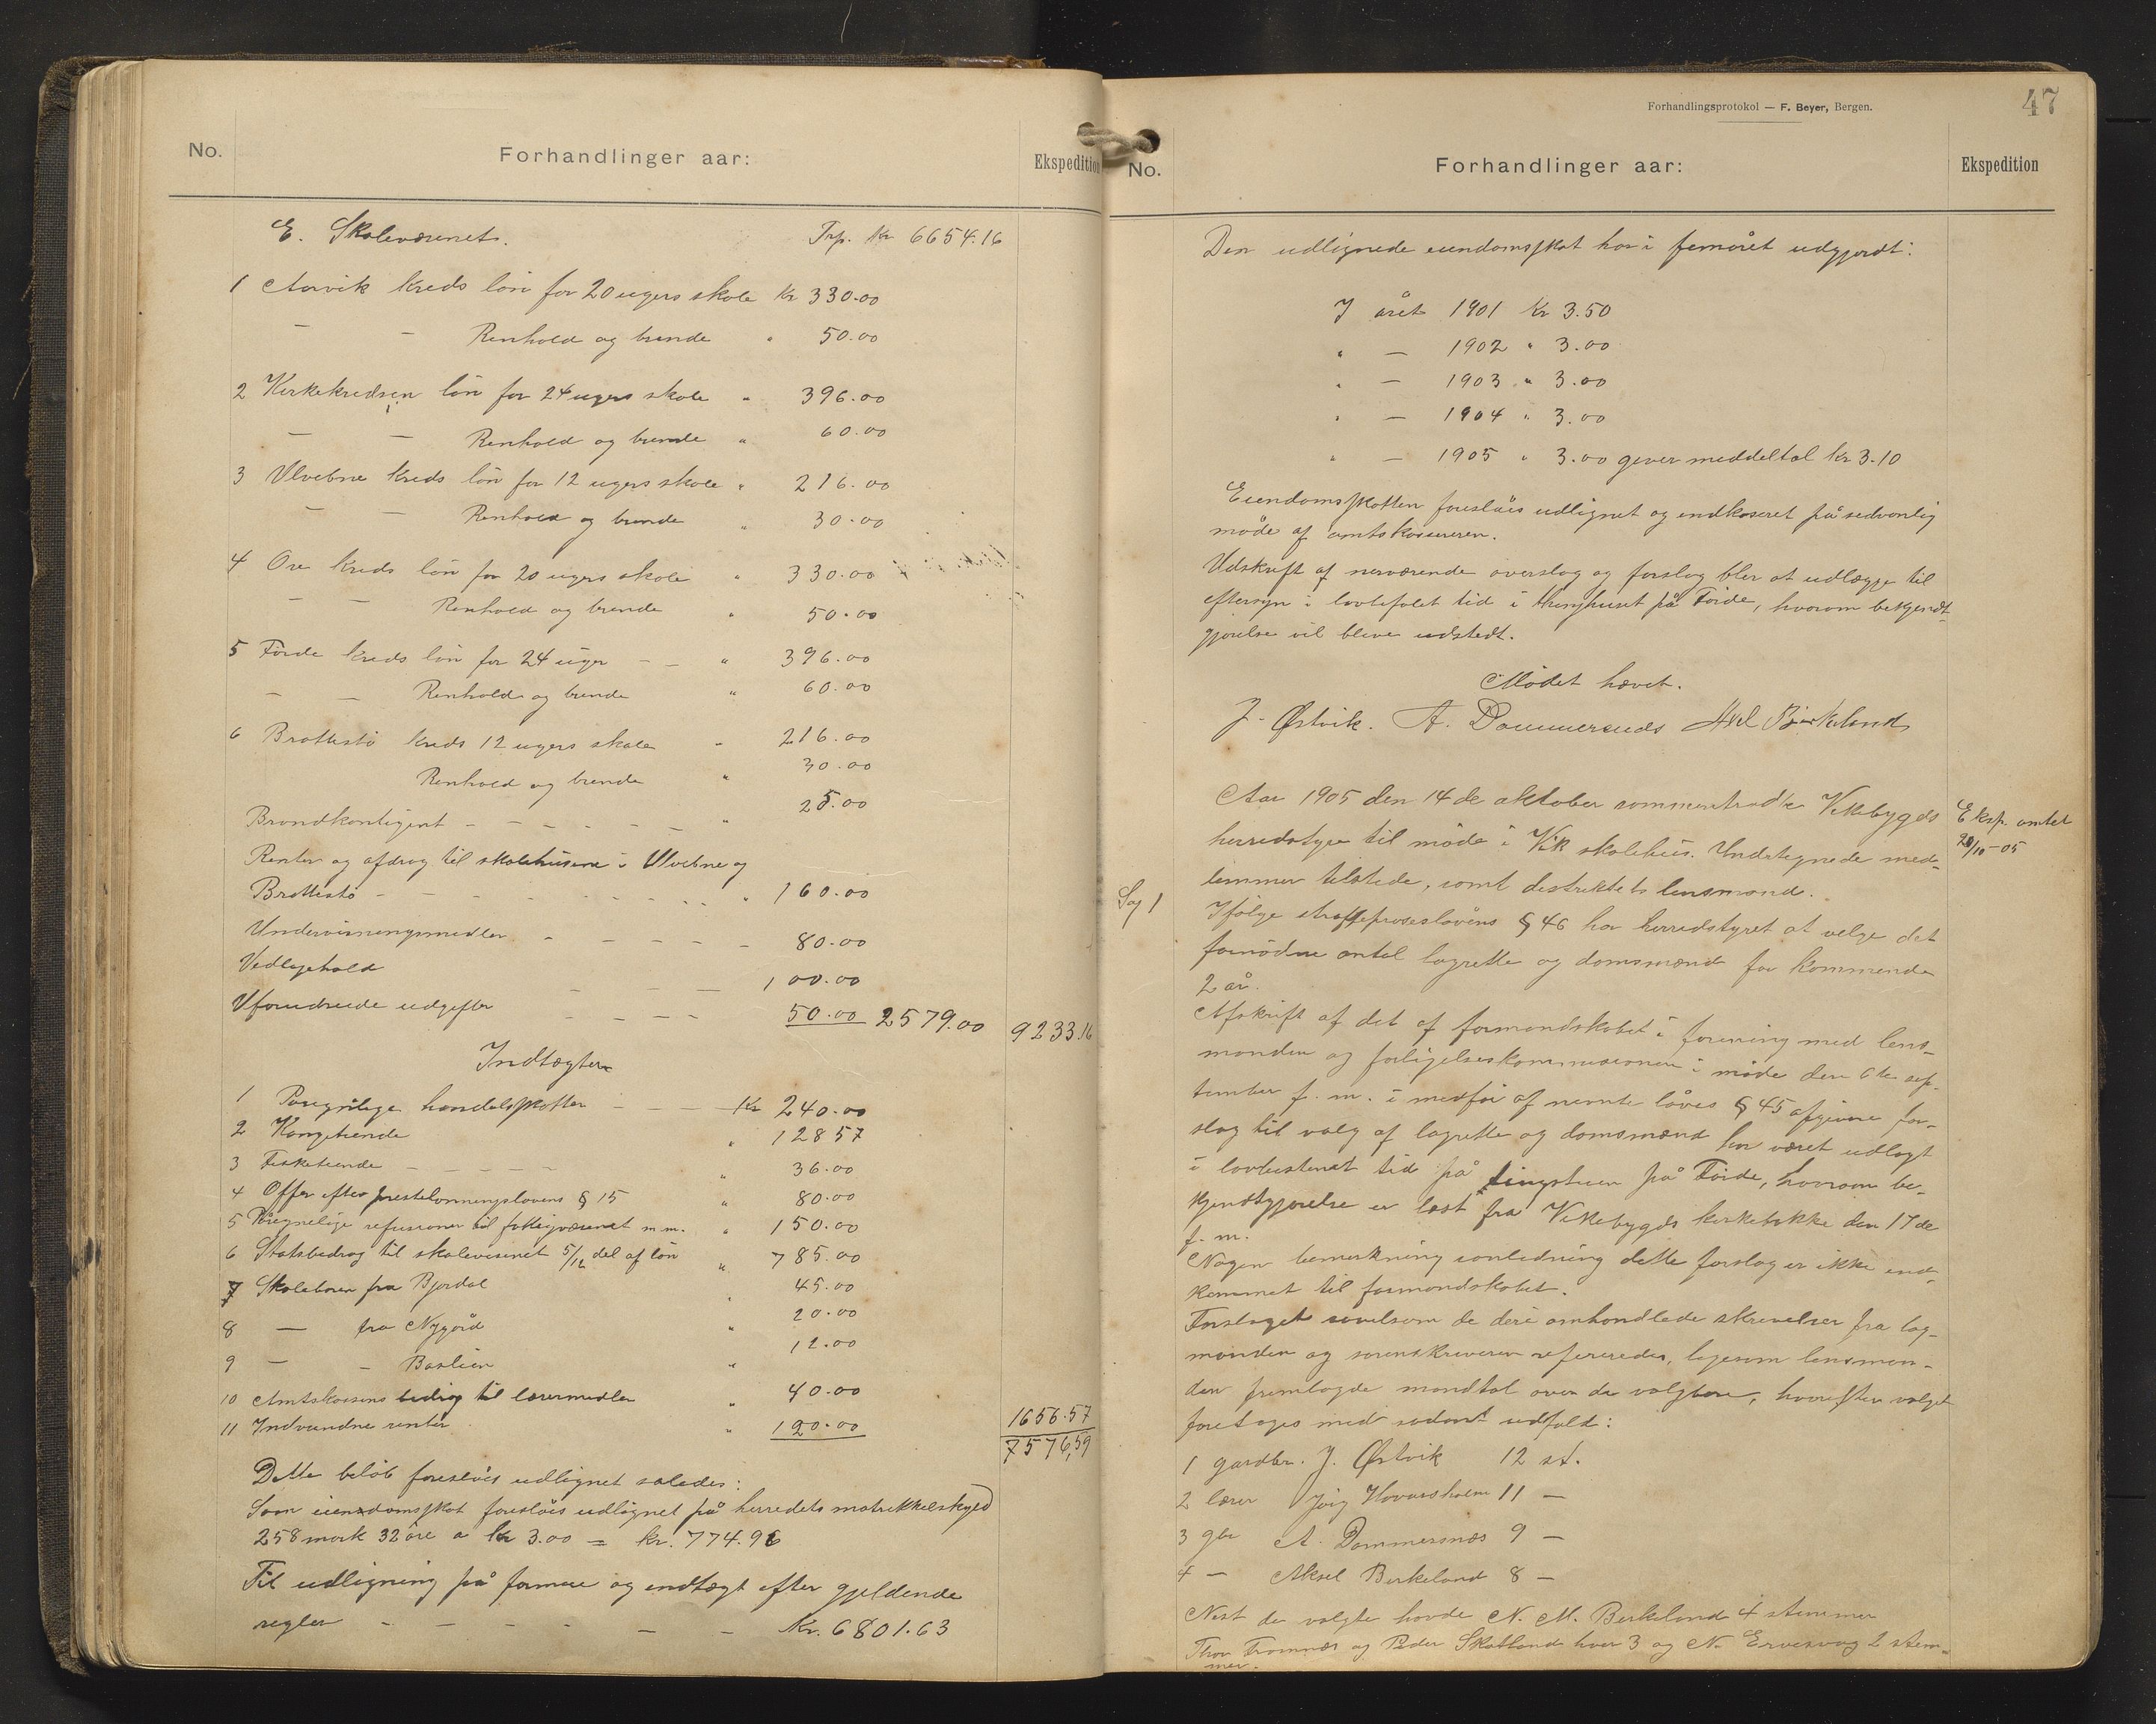 No.
Forhandlinger aar:
Ekspedition
E. Skolevæsenet. Trp. Kr 6654.16
1 Aarvik kreds løn for 20 ugers skole Kr 330.00
— — Renhold og brende " 50.00
2 Kirkekredsen løn for 24 ugers skole " 396.00
— — Renhold og brende " 60.00
3 Ulvebne kreds løn for 12 ugers skole " 216.00
— — Renhold og brende " 30.00
4 Øre kreds løn for 20 ugers skole " 330.00
— — Renhold og brende " 50.00
5 Førde kreds løn for 24 uger — — " 396.00
— — Renhold og brende " 60.00
6 Brattestø kreds 12 ugers skole " 216.00
Renhold og brende " 30.00
Brandkontigent — — — — — — " 25.00
Renter og afdrag til skolehusene i Ulvebne og
Brattestø — — — — — — — " 160.00
Undervisningsmidler — — — — — 80.00
Vedligehold — — — 100.00
Uforudseede udgifter — — — — 50.00 2579.00 9233.16
Indtægter
1 Paregnlige handelsskatter — — — Kr 240.00
2 Kongetiende " 128 57
3 Fisketiende — — — — — " 36.00
4 Offer efter prestelønningslovens § 15 " 80.00
5 Påregnelige refusioner til fattigvæsenet m.m. " 150.00
6 Statsbidrag til skolevesenet 5/12 del af løn " 785.00
7 Skoleboren fra Bjordal " 45.00
8 — fra Nygård " 20.00
9 — — Baslien " 12.00
10 Amtskassens bidrag til lærermidler " 40.00
11 Indvundne renter " 120.00 1656.57
7576,59
Dette beløb foreslåes udlignet således:
Som eiendomsskat foreslåes udlignet på herredets matrikkelskyld
258 mark 32 øre a kr 3.00 = kr. 774.96
Til udligning på formue og indtægt efter gjeldende
regler — — — — — — Kr. 6801.63
Forhandlingsprotokol — F. Beyer, Bergen.
47
No.
Forhandlinger aar:
Ekspedition
Den udlignede eiendomsskat har i femåret udgjordt:
I året 1901 kr 3.50
" — 1902 " 3.00
" — 1903 " 3.00
" — 1904 " 3.00
" — 1905 " 3.00 giver meddeltal kr 3.10
Eiendomsskatten foreslåes udlignet og indkaseret på sedvanlig
måde af amtskassereren.
Udskrift af nærværende overslag og forslag bler at udlægge til
eftersyn i lovbefalet tid i thinghuset på Førde, hvorom bekjendt-
gjørelse vil blive udstedt.
Mødet hævet.
J. Østvik. A. Dommersnæs Aksel Birkeland
Aar 1905 den 14de oktober sammentrådte Vikebygds
herredstyre til møde i Vik skolehus. Undertegnede med-
lemmer tilstede, samt destriktets lensmand.
Eksp. amtet
28/10-05
Sag 1
Ifølge straffeproseslovens § 46 har herredstyret at velge det
fornødne antal lagrette og domsmænd for kommende
2 år.
Afskrift af det af formandskabet i forening med lens-
manden og forligelseskommisionen i møde den 6te sep-
tember f. m. i medfør af nevnte lovs § 45 afgivne for-
slag til valg af lagrette og domsmænd har været udlagt
i lovbestemt tid på tingstuen på Førde, hvorom be-
kjendtgjørelse er læst fra Vikebygds kirkebakke den 17de
f. m.
Nogen bemerkning i anledning dette forslag er ikke ind-
kommet til formandskabet.
Forslaget såvelsom de deri omhandlede skrivelser fra lag-
manden og sorenskriveren refereredes, ligesom lensman-
den fremlagde mandtal over de valgbare, hvorefter valget
foretoges med sådant udfald:
1 gardbr. J. Østvik 12 st.
2 lærer Hovarsholm 11 —
3 gbr A. Dommersnæs 9 —
4 — Aksel Birkeland 8 —
Nest de valgte havde N. M. Birkeland 4 stemmer
Thor Tromnæs og Peder Skatland hver 3 og N. Ervesvåg 2 stem-
mer.